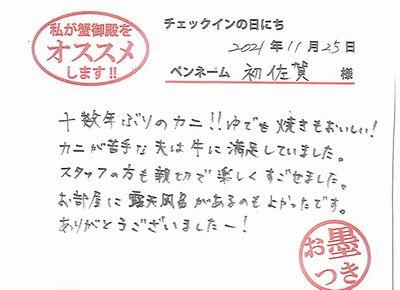 私が蟹御殿を
オススメ
します!!
チェックインの日にち
2021年11月25日
ペンネーム 初佐賀 様
十数年ぶりのカニ!!ゆでも焼きもおいしい!
カニが苦手な夫は牛に満足していました。
スタッフの方も親切で楽しくすごせました。
お部屋に露天風呂があるのもよかったです。
ありがとうございましたー!
お墨
つき